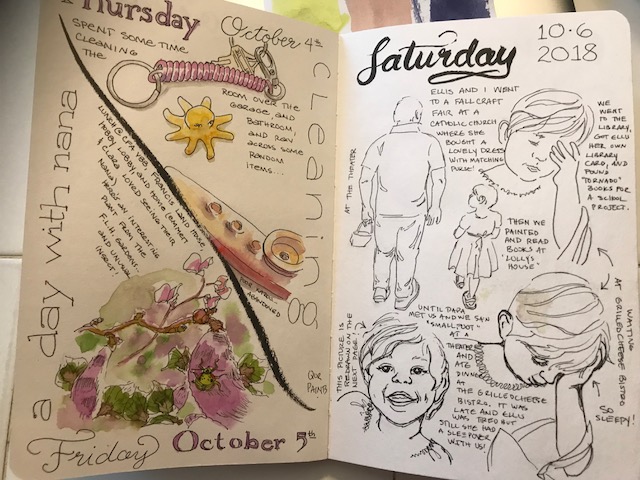 Thursday
October 4th
SPENT SOME TIME
CLEANING
THE
ROOM OVER THE
GARAGE, AND
BATHROOM,
AND RAN
ACROSS SOME
RANDOM
ITEMS...
cleaning
a day with nana
HOBBY LOBBY, AND SOME
LOVED SEEING THEIR
HERE'S AN INTERESTING
PLANT FROM THE
GARDENS...
AND UNUSUAL
INSECT.
ABANDONED
OUR
PAINTS
Friday
October 5th
Saturday
10·6
2018
ELLIS AND I WENT
TO A FALL CRAFT
FAIR AT A
CATHOLIC CHURCH
WHERE SHE
BOUGHT A
LOVELY DRESS
WITH MATCHING
PURSE!
WE
WENT
TO THE
LIBRARY,
GOT ELLIS
HER OWN
LIBRARY
CARD, AND
FOUND
"TORNADO"
BOOKS FOR
A SCHOOL
PROJECT.
AT THE THEATER
THEN WE
PAINTED
AND READ
BOOKS AT
"LOLLY'S
HOUSE"
UNTIL PAPA
MET US AND WE SAW
"SMALLFOOT"
AT A
THEATER
AND
ATE
DINNER
AT
THE GRILLED CHEESE
BISTRO. IT WAS
LATE AND ELLIS
WAS TIRED BUT
STILL SHE HAD
A SLEEPOVER
WITH US!
THIS PICTURE
REDRAWN ON THE
NEXT PAGE!
WAITING
AT GRILLED CHEESE BISTRO
SO
SLEEPY!